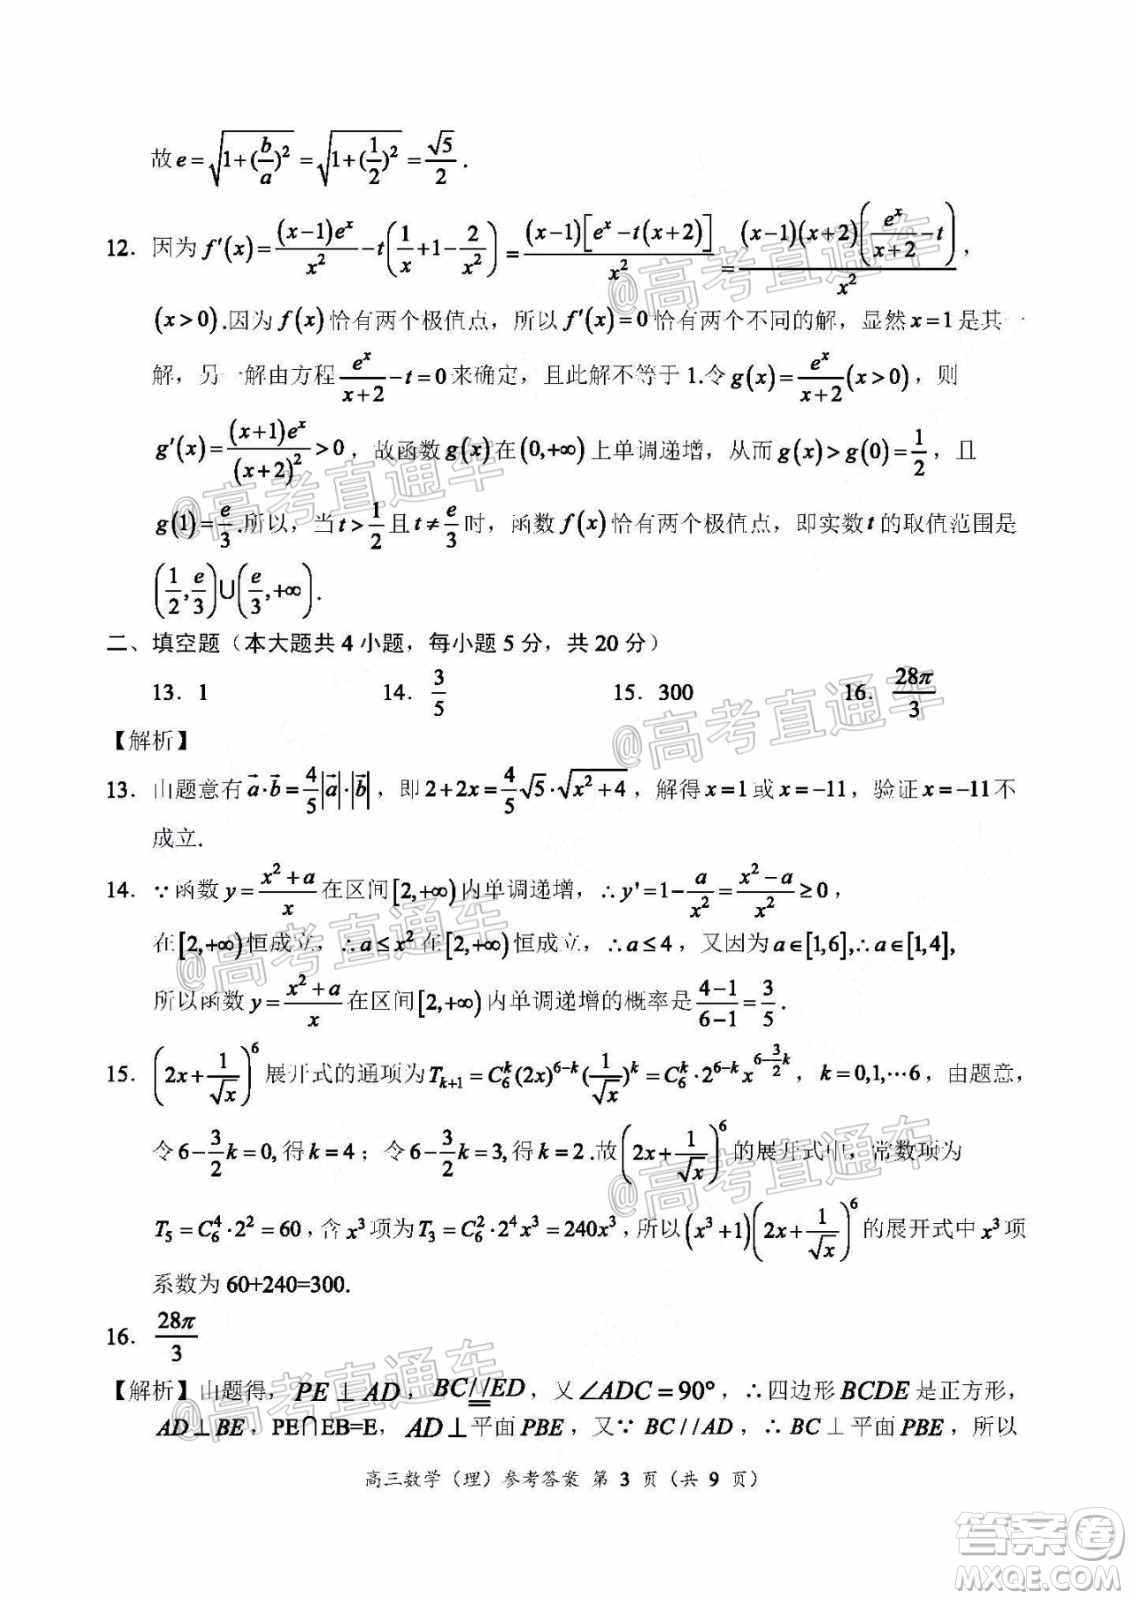 故 e=√(1+(b/a)²)=√(1+(1/2)²)=√5/2.
12．因为 f′(x)=(x−1)eˣ/x²−t(1/x+1−2/x²)=(x−1)[eˣ−t(x+2)]/x²=(x−1)(x+2)(eˣ/(x+2)−t)/x²，
(x>0).因为 f(x) 恰有两个极值点，所以 f′(x)=0 恰有两个不同的解，显然 x=1 是其一
解，另一解由方程 eˣ/(x+2)−t=0 来确定，且此解不等于 1.令 g(x)=eˣ/(x+2)(x>0)，则
g′(x)=(x+1)eˣ/(x+2)²>0，故函数 g(x) 在 (0,+∞) 上单调递增，从而 g(x)>g(0)=1/2，且
g(1)=e/3.所以，当 t>1/2 且 t≠e/3 时，函数 f(x) 恰有两个极值点，即实数 t 的取值范围是
(1/2,e/3)∪(e/3,+∞).
二、填空题（本大题共 4 小题，每小题 5 分，共 20 分）
13．1 14．3/5 15．300 16．28π/3
【解析】
13．由题意有 a⃗·b⃗=4/5|a⃗|·|b⃗|，即 2+2x=4/5√5·√(x²+4)，解得 x=1 或 x=−11，验证 x=−11 不
成立.
14．∵函数 y=(x²+a)/x 在区间[2,+∞)内单调递增，∴y'=1−a/x²=(x²−a)/x²≥0，
在[2,+∞)恒成立，∴a≤x² 在[2,+∞)恒成立，∴a≤4，又因为 a∈[1,6],∴a∈[1,4],
所以函数 y=(x²+a)/x 在区间[2,+∞)内单调递增的概率是 (4−1)/(6−1)=3/5.
15．(2x+1/√x)⁶ 展开式的通项为 Tₖ₊₁=C₆ᵏ(2x)⁶⁻ᵏ(1/√x)ᵏ=C₆ᵏ·2⁶⁻ᵏx^(6−3/2k)，k=0,1,⋯6，由题意，
令 6−3/2k=0,得 k=4；令 6−3/2k=3,得 k=2.故(2x+1/√x)⁶ 的展开式中，常数项为
T₅=C₆⁴·2²=60，含 x³ 项为 T₃=C₆²·2⁴x³=240x³，所以(x³+1)(2x+1/√x)⁶ 的展开式中 x³ 项
系数为 60+240=300.
16．28π/3
【解析】由题得，PE⊥AD，BC//ED，又∠ADC=90°，∴四边形BCDE是正方形，
AD⊥BE，PE∩EB=E，AD⊥平面PBE，又∵BC//AD，∴BC⊥平面PBE，所以
高三数学（理）参考答案 第 3 页（共 9 页）
@高考直通车
@高考直通车
@高考直通车
@高考直通车
@高考直通车
@高考直通车
答案卷
MXQE.COM